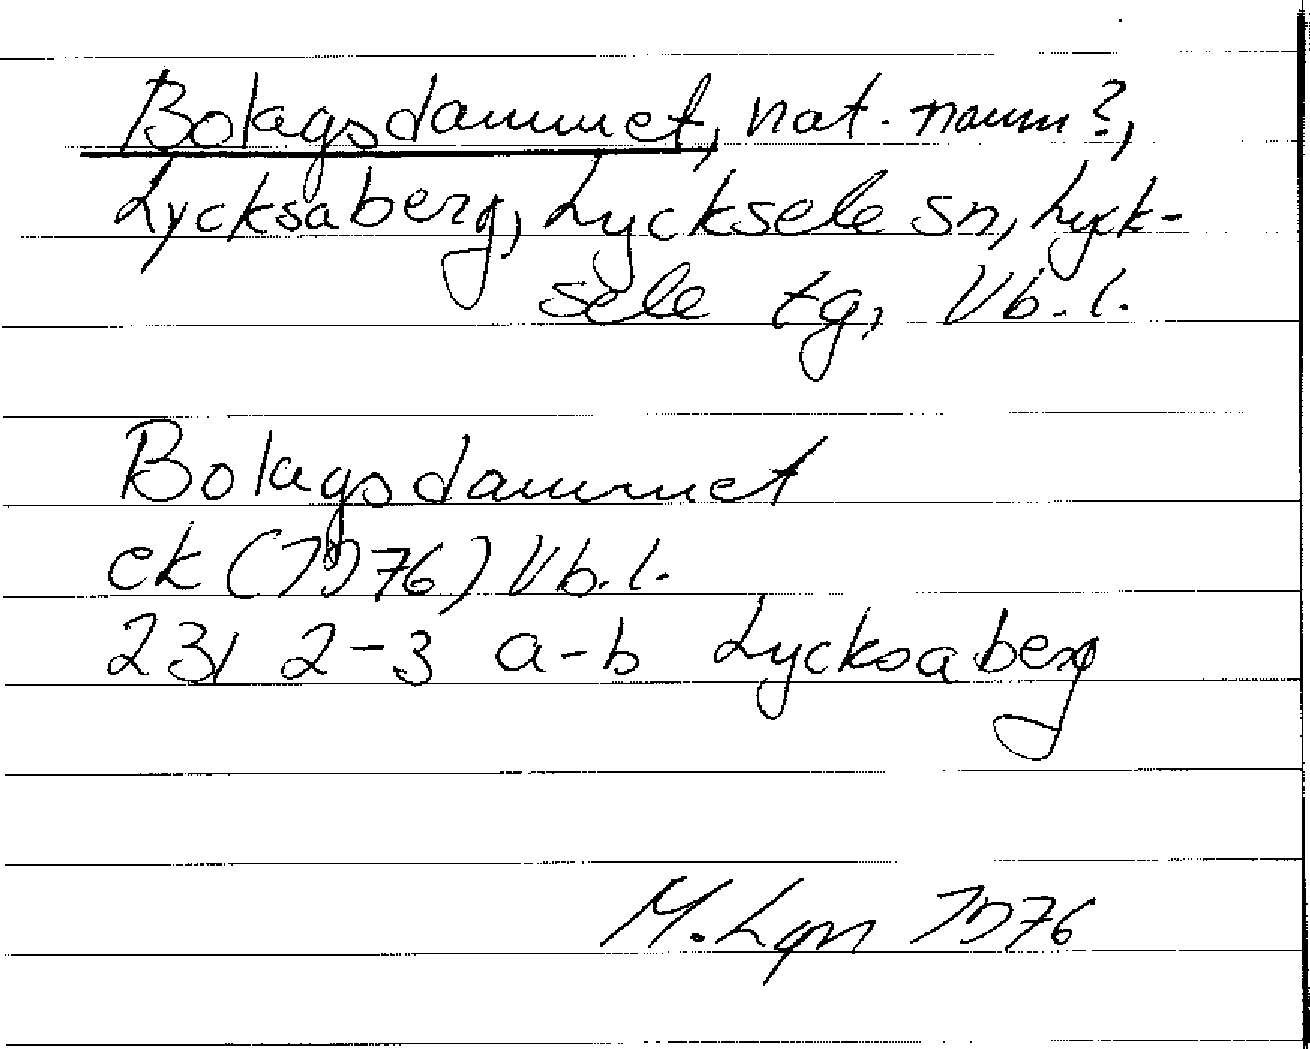 Bolagsdammet, nat. namn?,
Lycksaberg, Lycksele sn, Lyck-
sele tg, Vb. l.
Bolagsdammet
ek (1976) Vb. l.
23I 2-3 a-b Lycksaberg
M. Lgn 1976